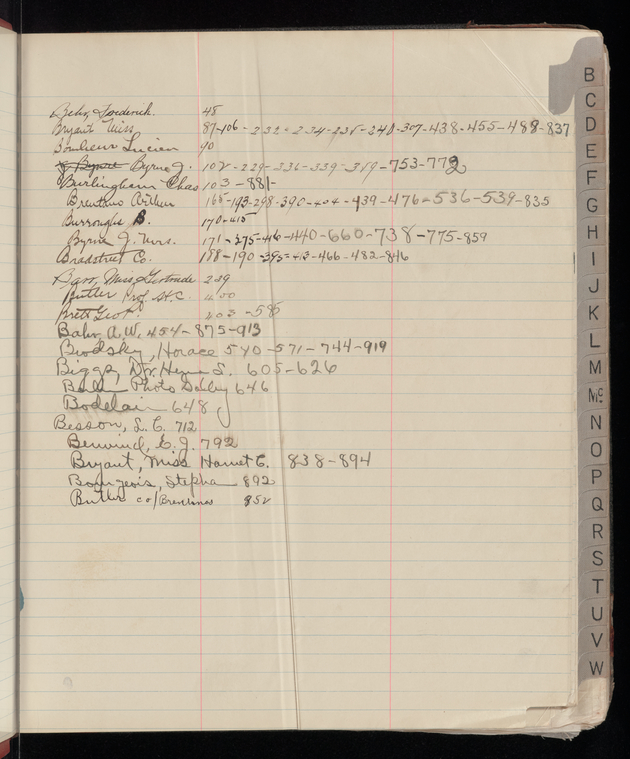 Behr, Frederick. 48
Bryant Miss 87-106-232-234-238-240-307-438-455-488-837
Bonheur Lucien 90
Byrne J. 102-229-336-339-349-753-772
Burlingham Chas 103-881-
Brentano Arthur 165-193-298-390-404-439-476-536-539-835
Burroughs B. 170-415
Byrne J. Mrs. 171-275-416-440-660-738-775-859
Bradstreet Co. 188-190-395-413-466-482-846
Barr, Miss Gertrude 289
Butler Prof. H.C. 400
Brett Geo P. 203-58
Bahr, A.W. 454-875-913
Brodsky, Horace 540-571-744-919
Biggs, Dr. Herman S. 605-626
Photo 646
Bodelair 648
Besson, L. C. 712
Berwind, E. J. 792
Bryant, Miss Harriet C. 838-894
Bourgeois, Stephan 892
Butler co/Brentanos 852
B
C
D
E
F
G
H
I
J
K
L
M
Mc
N
O
P
Q
R
S
T
U
V
W